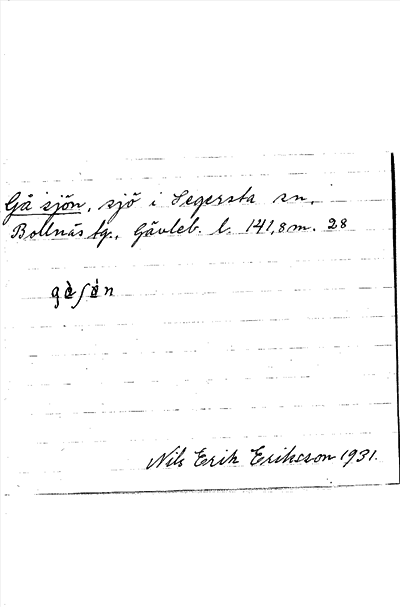 Gåsjön, sjö i Segersta sn,
Bollnäs tg., Gävleb. l. 141,8 m. 28
Nils Erik Eriksson 1931.